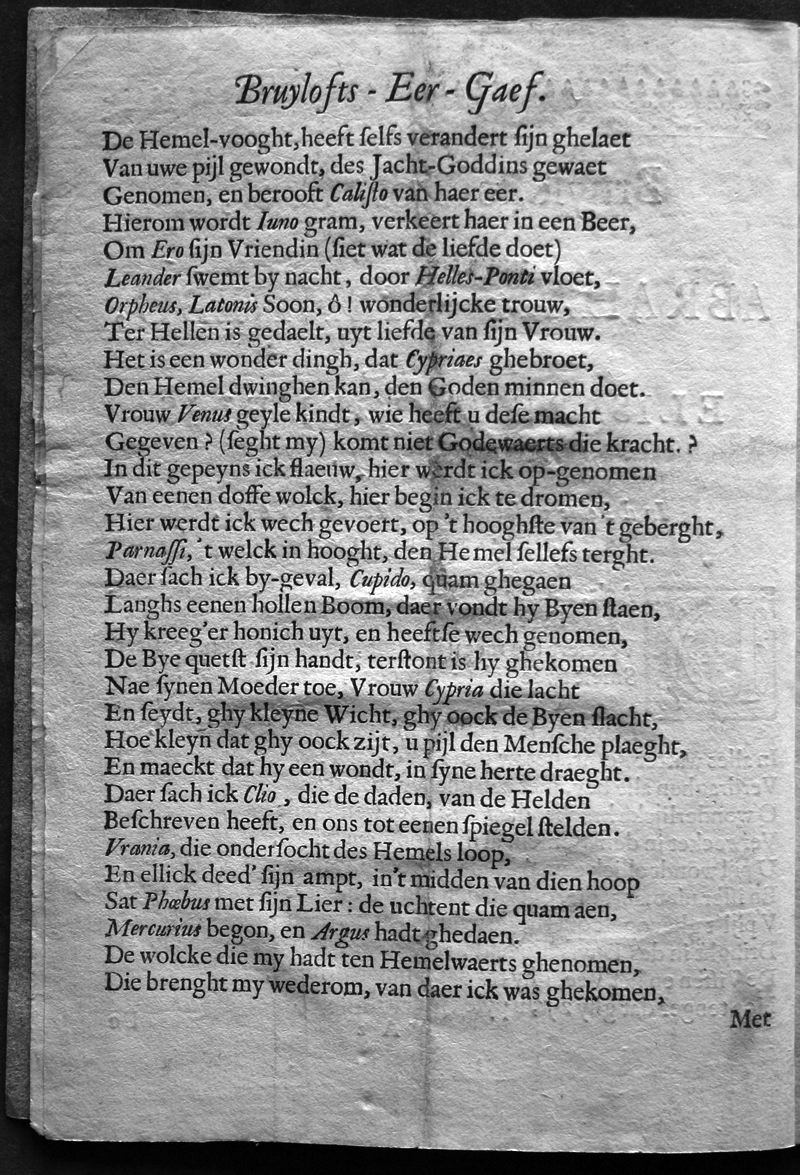 Bruylofts - Eer - Gaef.
De Hemel-vooght, heeft ſelfs verandert ſijn ghelaet
Van uwe pijl gewondt, des Jacht-Goddins gewaet
Genomen, en berooft Caliſto van haer eer.
Hierom wordt Iuno gram, verkeert haer in een Beer,
Om Ero ſijn Vriendin (ſiet wat de liefde doet)
Leander ſwemt by nacht, door Helles-Ponti vloet,
Orpheus, Latonis Soon, ô! wonderlijcke trouw,
Ter Hellen is gedaelt, uyt liefde van ſijn Vrouw.
Het is een wonder dingh, dat Cypriaes ghebroet,
Den Hemel dwinghen kan, den Goden minnen doet.
Vrouw Venus geyle kindt, wie heeft u deſe macht
Gegeven? (ſeght my) komt niet Godewaerts die kracht.?
In dit gepeyns ick ſlaeuw, hier werdt ick op-genomen
Van eenen doffe wolck, hier begin ick te dromen,
Hier werdt ick wech gevoert, op 't hooghſte van 't geberght,
Parnaſſi, 't welck in hooght, den Hemel ſellefs terght.
Daer ſach ick by-geval, Cupido, quam ghegaen
Langhs eenen hollen Boom, daer vondt hy Byen ſtaen,
Hy kreeg'er honich uyt, en heeftſe wech genomen,
De Bye quetſt ſijn handt, terſtont is hy ghekomen
Nae ſynen Moeder toe, Vrouw Cypria die lacht
En ſeydt, ghy kleyne Wicht, ghy oock de Byen ſlacht,
Hoe kleyn dat ghy oock zijt, u pijl den Menſche plaeght,
En maeckt dat hy een wondt, in ſyne herte draeght.
Daer ſach ick Clio, die de daden, van de Helden
Beſchreven heeft, en ons tot eenen ſpiegel ſtelden.
Vrania, die onderſocht des Hemels loop,
En ellick deed' ſijn ampt, in't midden van dien hoop
Sat Phœbus met ſijn Lier: de uchtent die quam aen,
Mercurius begon, en Argus hadt ghedaen.
De wolcke die my hadt ten Hemelwaerts ghenomen,
Die brenght my wederom, van daer ick was ghekomen,
Met